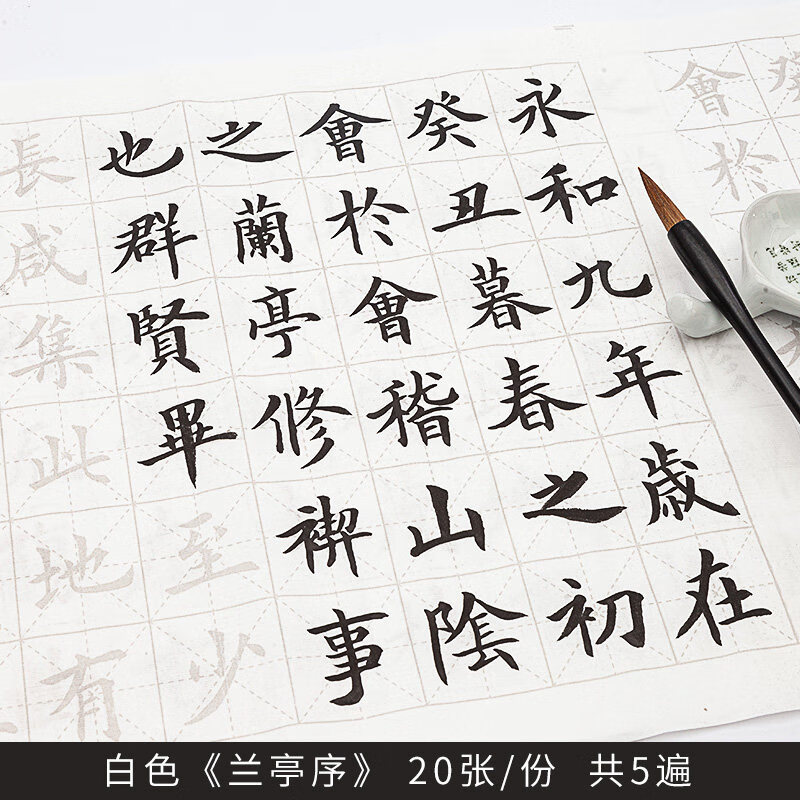 永和九年歳在
癸丑暮春之初
會於會稽山陰
之蘭亭修禊事
也群賢畢至少
長咸集此地有
會於
白色《兰亭序》 20张/份 共5遍